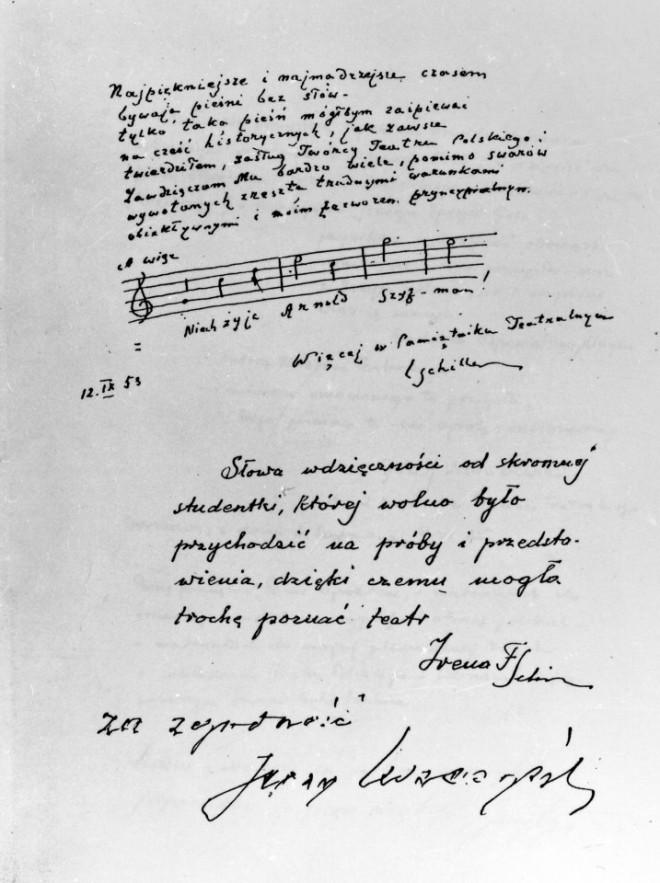 Najpiękniejsze i najmądrzejsze czasem
bywają pieśni bez słów.
Tylko taką pieśń mógłbym zaśpiewać
na cześć historycznych, jak zawsze
twierdziłem, zasług Twórcy Teatru Polskiego.
Zawdzięczam Mu bardzo wiele, pomimo swarów
wywołanych zresztą trudnymi warunkami
obiektywnymi i moim jęzorem pryncypialnym.
A więc
Niech żyje Arnold Szyf-man!
Więcej w Pamiętniku Teatralnym
LSchiller
12.IX 53
Słowa wdzięczności od skromnej
studentki, której wolno było
przychodzić na próby i przedsta-
wienia, dzięki czemu mogła
trochę poznać teatr
Irena
Za zgodność
Jerzy